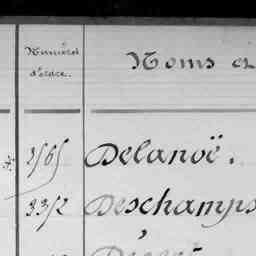 Numéros
d'ordre.
Noms et
Delanoë.
3312 Deschamps